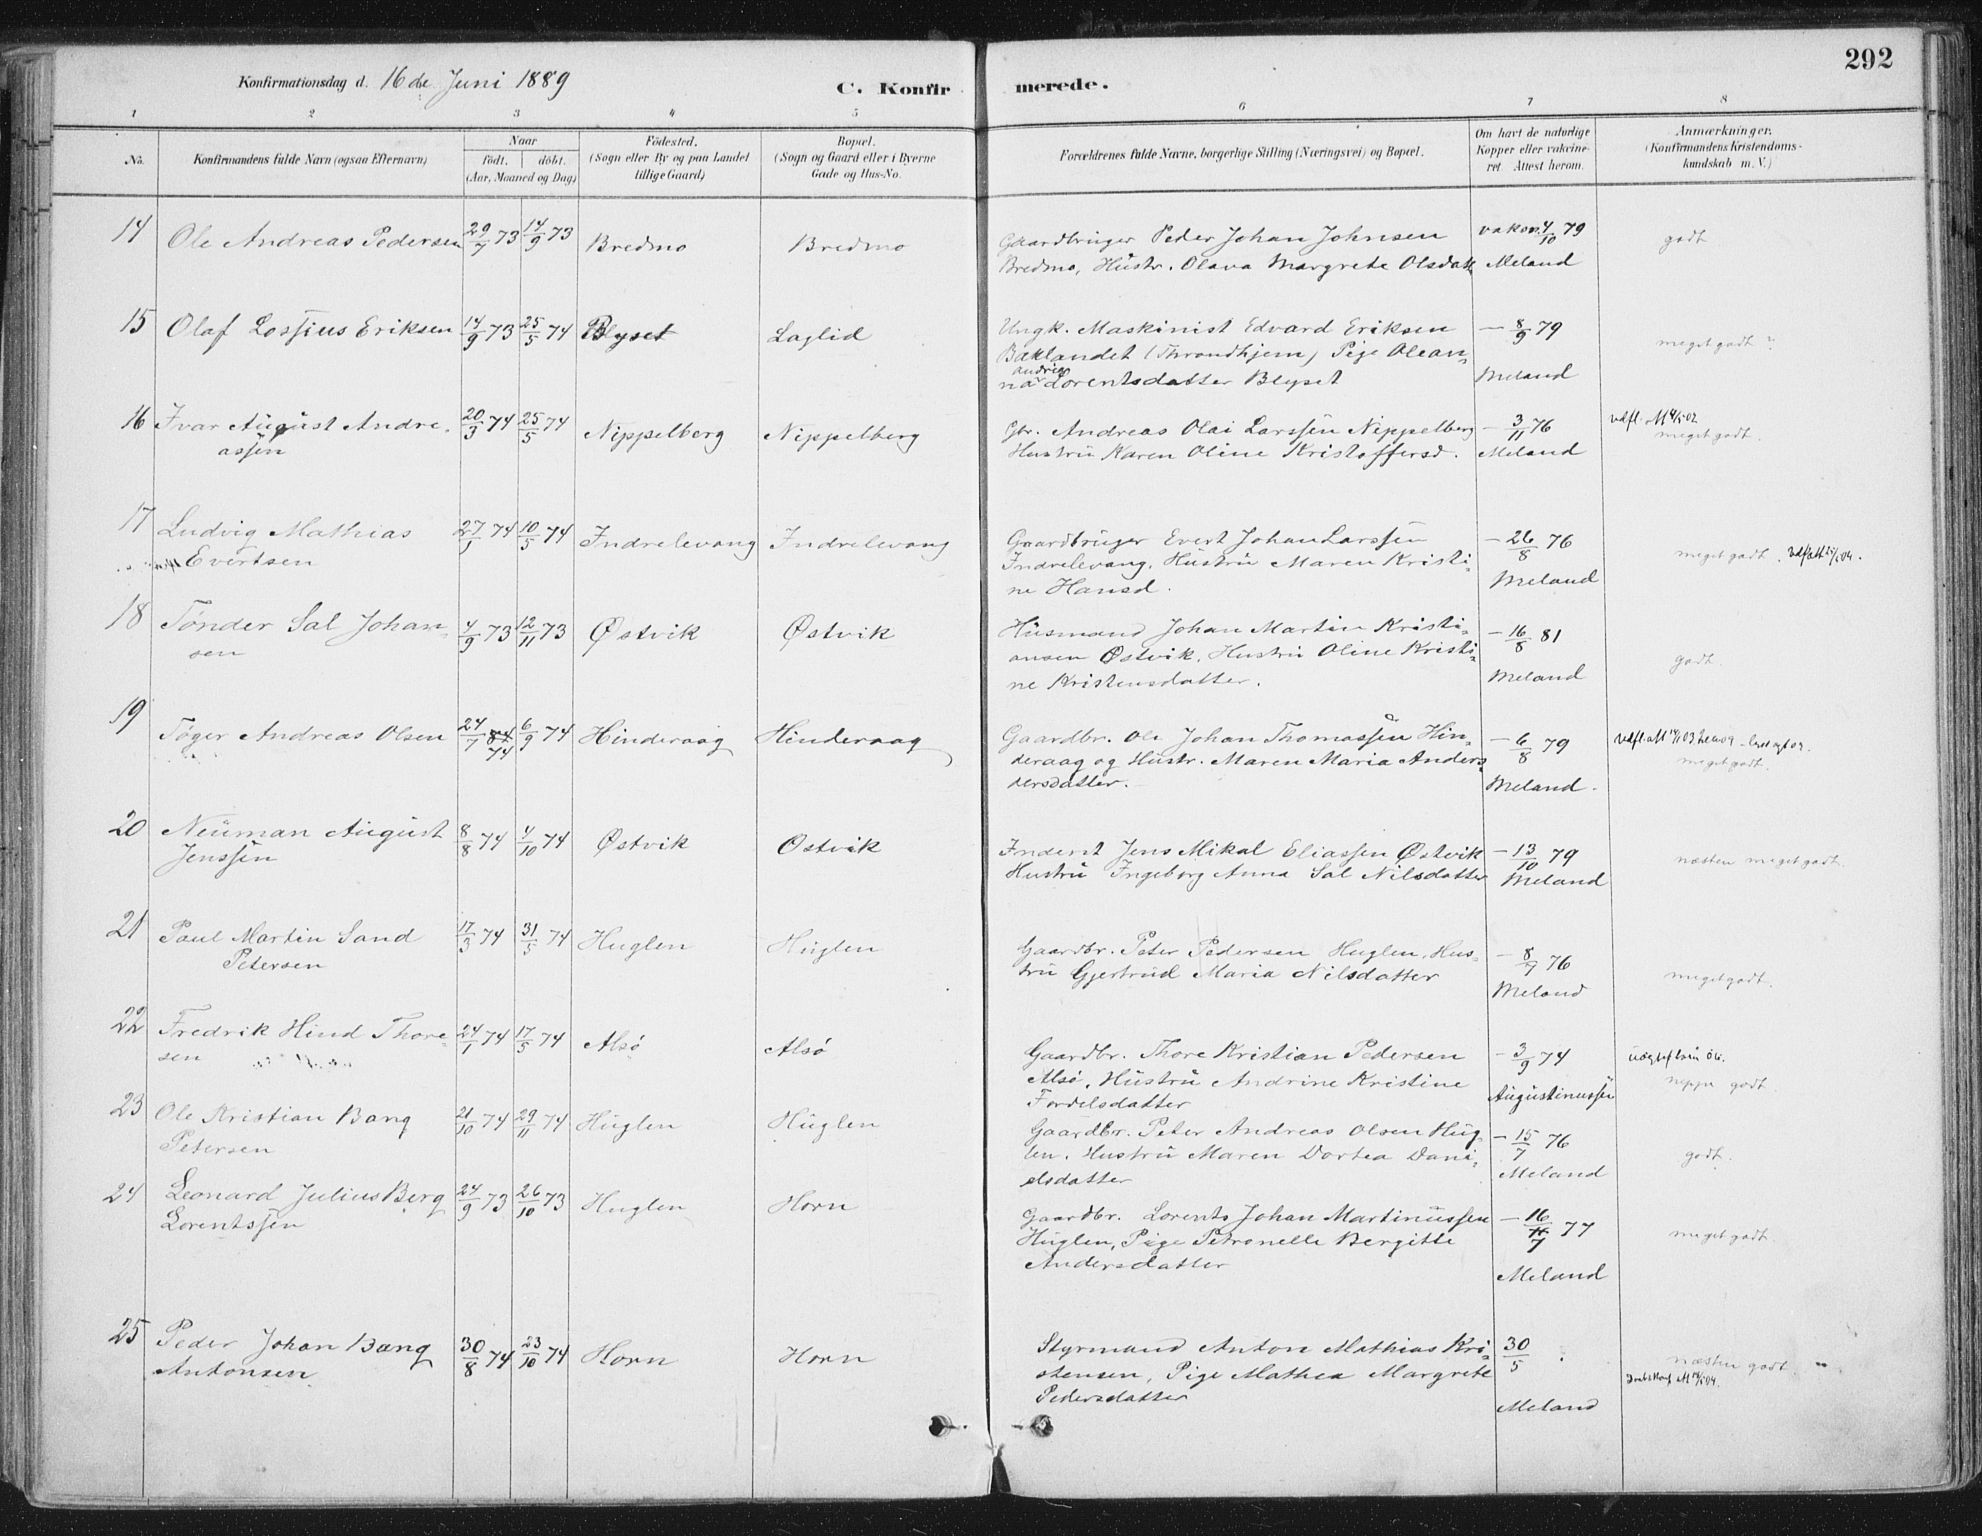 292
Konfirmationsdag d. 16de Juni 1889
C. Konfirmerede.
1 2 3 4 5 6 7 8
No.
Konfirmandens fulde Navn (ogsaa Efternavn)
Naar
födt. döbt.
(Aar, Maaned og Dag)
Födested.
(Sogn eller By og paa Landet
tillige Gaard)
Bopæl.
(Sogn og Gaard eller i Byerne
Gade og Hus-No.
Forældrenes fulde Navne, borgerlige Stilling (Næringsvei) og Bopæl.
Om havt de naturlige
Kopper eller vakcine-
ret Attest herom.
Anmærkninger.
(Konfirmandens Kristendoms-
kundskab m. V.)
14 Ole Andreas Pedersen 29/7 73 14/9 73 Bredmo Bredmo
Gaardbruger Peder Johan Johnsen vakcin. 4/10 79 godt
Bredmo, Hustr. Olava Margrete Olsdatt Meland
15 Olaf Lossius Eriksen 14/9 73 25/5 74 Blyset Laglid
Ungk. Maskinist Edvard Eriksen – 8/9 79 meget godt ?
Baklandet (Throndhjem) Pige Olean-
andrea
na Lorentsdatter Blyset Meland
16 Ivar August Andre- 20/3 74 25/5 74 Nippelberg Nippelberg
assen
Gbr. Andreas Olai Larssen Nippelberg – 3/11 76 meget godt.
Hustru Karen Oline Kristoffersd. Meland
17 Ludvig Mathias 10/5 74 Indrelevang Indrelevang
Evertsen
Gaardbruger Evert Johan Larssen – 26/8 76 meget godt.
Indrelevang, Hustru Maren Kristi-
ne Hansd. Meland
18 Tønder Sal Johan- 4/9 73 12/11 73 Østvik Østvik
sen
Husmand Johan Martin Kristi- – 16/8 81 godt.
ansen Østvik, Hustru Oline Kristi-
ne Kristensdatter. Meland
19 Tøger Andreas Olsen 24/7 84 74 6/9 74 Hinderaag Hinderaag
Gaardbr. Ole Johan Thomassen Hin- – 6/8 79
deraag og Hustr. Maren Maria Anders meget godt.
dersdatter. Meland.
20 Neuman August 8/8 74 4/10 74 Østvik Østvik
Jenssen
Inderst Jens Mikal Eliassen Østvik – 13/10 79 næsten meget godt.
Hustru Ingeborg Anna Sal Nilsdatter Meland
21 Paul Martin Sand 17/3 74 31/5 74 Huglen Huglen
Petersen
Gaardbr. Peter Pedersen Huglen, Hus- – 8/9 76 meget godt.
tru Gjertrud Maria Nilsdatter Meland
22 Fredrik Hind Thore- 24/1 74 17/5 74 Alsø Alsø
sen
Gaardbr. Thore Kristian Pedersen – 3/9 74
Alsø, Hustru Andrine Kristine Augustinussen neppe godt.
Fordelsdatter
23 Ole Kristian Bang 21/10 74 29/11 74 Huglen Huglen
Petersen
Gaardbr. Peter Andreas Olsen Hug- – 15/7 76 godt.
len, Hustru Maren Dortea Dani-
elsdatter Meland
24 Leonard Julius Berg 24/9 73 26/10 73 Huglen Horn
Lorentssen
Gaardbr. Lorents Johan Martinussen – 16/7 77 meget godt
Huglen, Pige Petronelle Bergitte
Andersdatter Meland
25 Peder Johan Bang 30/8 74 23/10 74 Horn Horn
Antonsen
Styrmand Anton Mathias Kri- 30/5 næsten godt.
stensen, Pige Mathea Margrete
Pedersdatter Meland